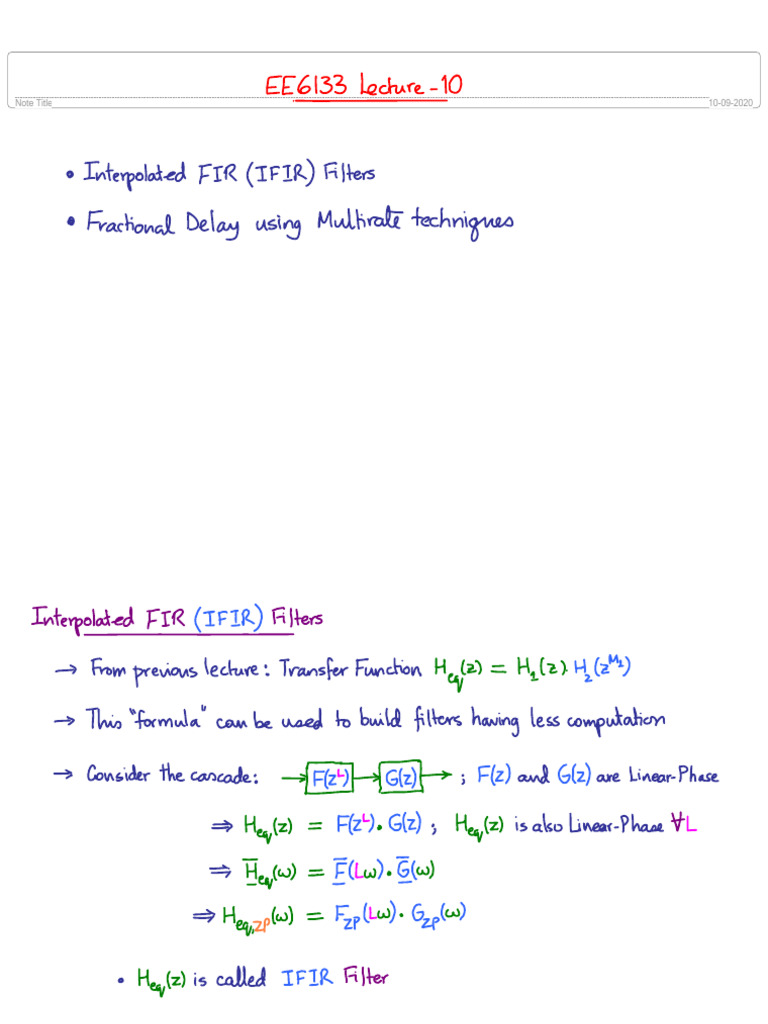 EE6133 Lecture-10
Note Title
10-09-2020
• Interpolated FIR (IFIR) Filters
• Fractional Delay using Multirate techniques
Interpolated FIR (IFIR) Filters
→ From previous lecture: Transfer Function H_eq(z) = H_1(z) H_2(z^{M_1})
→ This "formula" can be used to build filters having less computation
→ Consider the cascade: → F(z^L) → G(z) → ; F(z) and G(z) are Linear-Phase
⇒ H_eq(z) = F(z^L) · G(z) ; H_eq(z) is also Linear-Phase ∀L
⇒ H̲̅_eq(ω) = F̲̅(Lω) · G̲̅(ω)
⇒ H_eq,ZP(ω) = F_ZP(Lω) · G_ZP(ω)
• H_eq(z) is called IFIR Filter